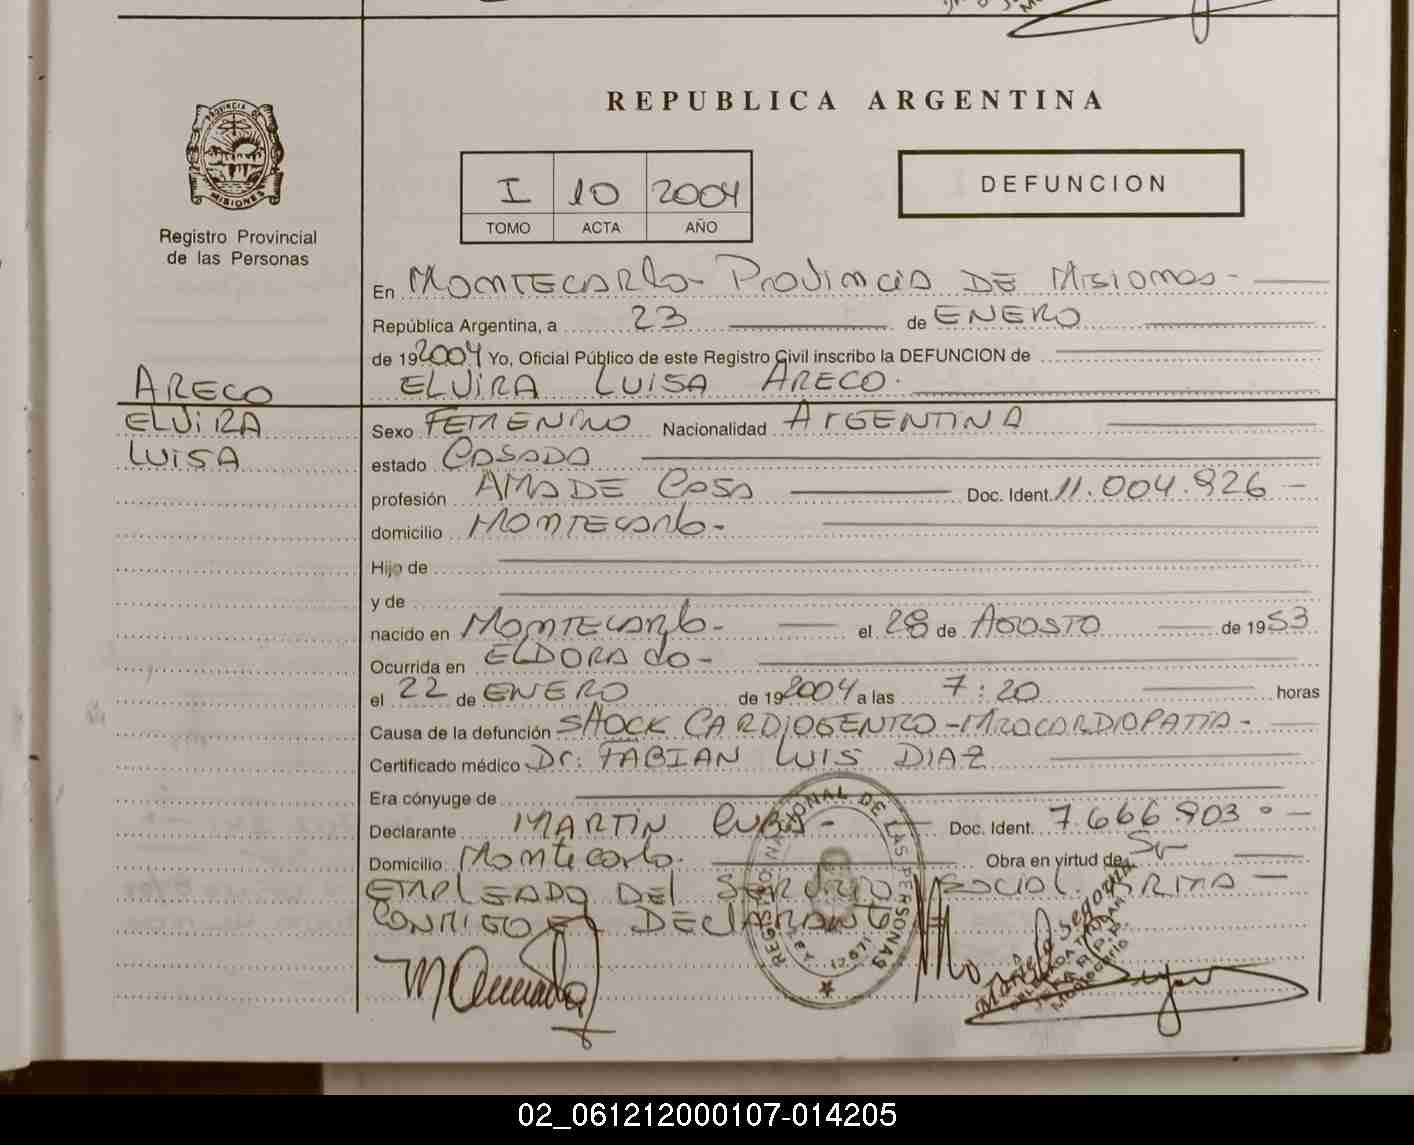 REPUBLICA ARGENTINA
PROVINCIA DE
MISIONES
Registro Provincial
de las Personas
I 10 2004
TOMO ACTA AÑO
DEFUNCION
En MONTECARLO- PROVINCIA DE MISIONES -
República Argentina, a 23 de ENERO
de 192004 Yo, Oficial Público de este Registro Civil inscribo la DEFUNCION de
ELVIRA LUISA ARECO.
ARECO
ELVIRA
LUISA
Sexo FEMENINO Nacionalidad ARGENTINA
estado CASADA
profesión AMA DE CASA Doc. Ident. 11.004.926 -
domicilio MONTECARLO -
Hijo de
y de
nacido en MONTECARLO - el 28 de AGOSTO de 1953
Ocurrida en ELDORADO -
el 22 de ENERO de 192004 a las 7:20 horas
Causa de la defunción SHOCK CARDIOGENICO - MIOCARDIOPATIA -
Certificado médico Dr. FABIAN LUIS DIAZ
Era cónyuge de
Declarante MARTIN Doc. Ident. 7.666.903
Domicilio Montecarlo. Obra en virtud de Sr
EMPLEADO DEL SERVICIO SOCIAL. FIRMA -
CONMIGO EL DECLARANTE
REGISTRO NACIONAL DE LAS PERSONAS
Marcelo Segovia
DELEGADA TITULAR
Montecarlo
02_061212000107-014205